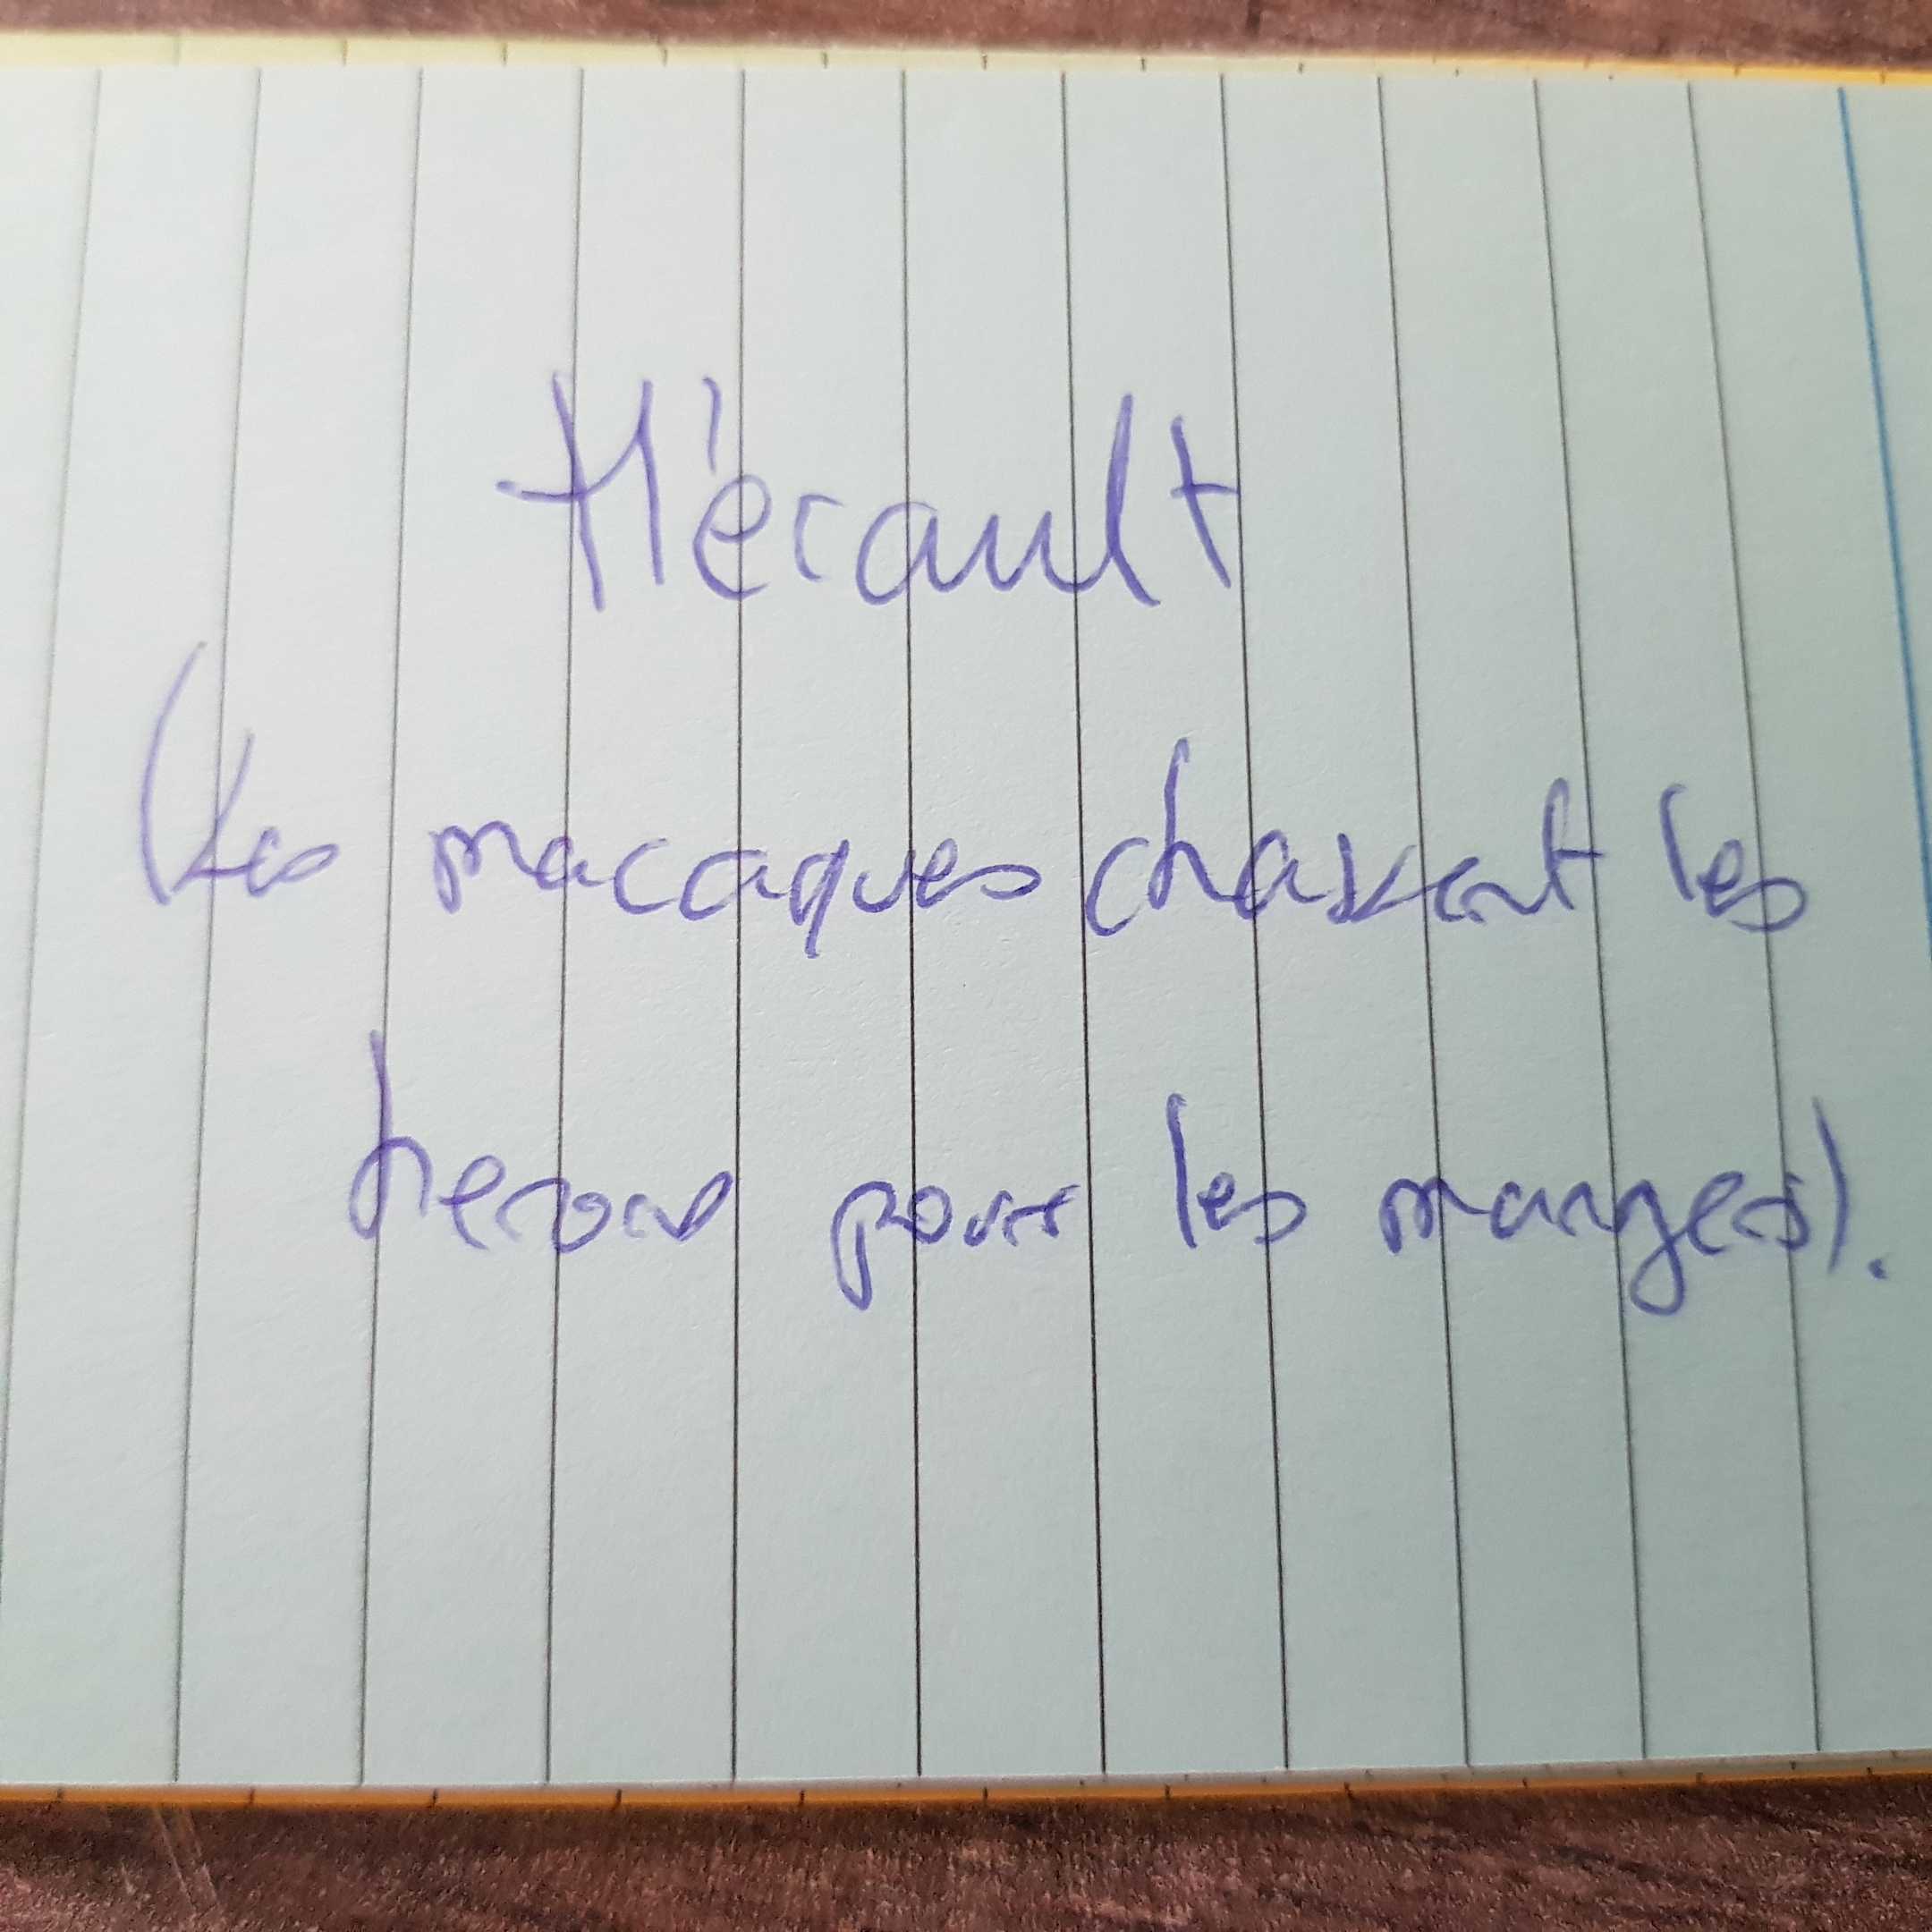 Hérault
(Les macaques chassent les
herons pour les manger).